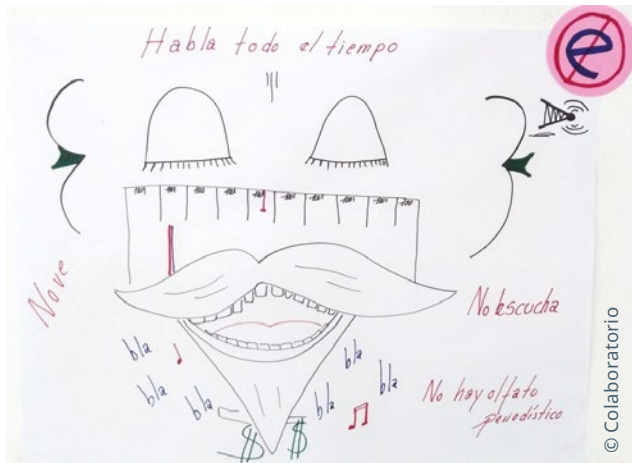 Habla todo el tiempo
e
No ve
No escucha
bla
bla
bla
bla
bla
bla
No hay olfato
periodístico
$ $
© Colaboratorio